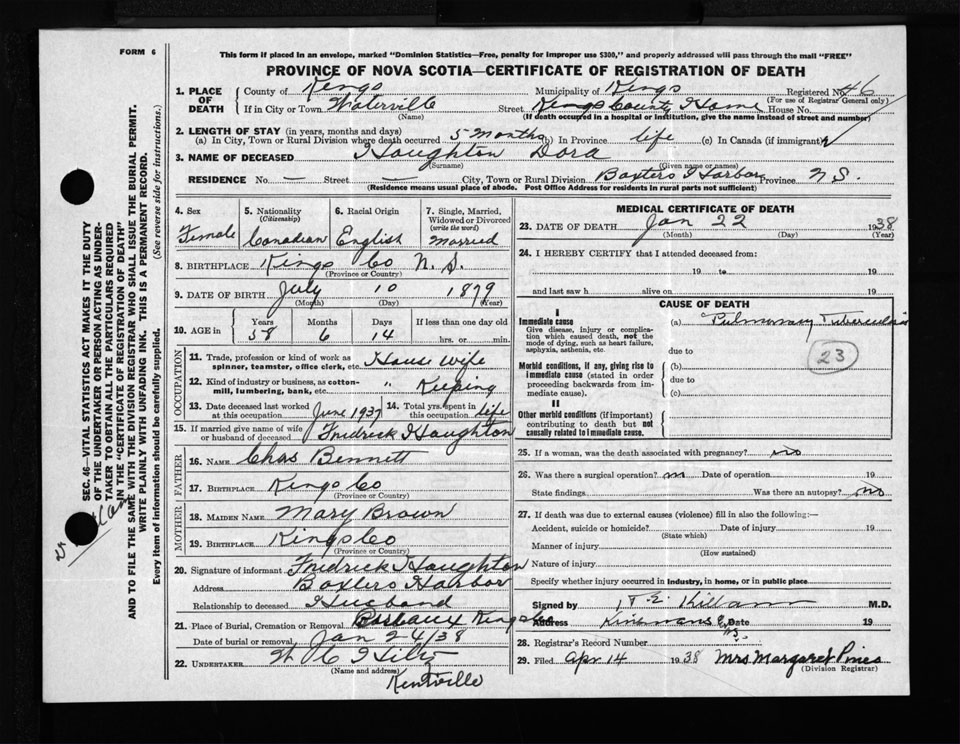 FORM 6
This form if placed in an envelope, marked "Dominion Statistics—Free, penalty for improper use $300," and properly addressed will pass through the mail "FREE"
PROVINCE OF NOVA SCOTIA—CERTIFICATE OF REGISTRATION OF DEATH
1. PLACE OF DEATH
County of Kings Municipality of Kings Registered No. 46
(For use of Registrar General only)
If in City or Town Waterville Street Kings County Home House No.
(Name) (If death occurred in a hospital or institution, give the name instead of street and number)
2. LENGTH OF STAY (in years, months and days)
(a) In City, Town or Rural Division where death occurred 5 months (b) In Province life (c) In Canada (if immigrant)
3. NAME OF DECEASED Houghton Dora
(Surname) (Given name or names)
RESIDENCE No. — Street — City, Town or Rural Division Baxters Harbor Province N S.
(Residence means usual place of abode. Post Office Address for residents in rural parts not sufficient)
4. Sex Female
5. Nationality (Citizenship) Canadian
6. Racial Origin English
7. Single, Married, Widowed or Divorced (write the word) Married
8. BIRTHPLACE Kings Co N. S.
(Province or Country)
9. DATE OF BIRTH July 10 1879
(Month) (Day) (Year)
10. AGE in Years Months Days If less than one day old
58 6 14 hrs. or min.
OCCUPATION
11. Trade, profession or kind of work as spinner, teamster, office clerk, etc. House wife
12. Kind of industry or business, as cotton-mill, lumbering, bank, etc. " Keeping
13. Date deceased last worked at this occupation June 1937
14. Total yrs. spent in this occupation life
15. If married give name of wife or husband of deceased Fredrick Houghton
FATHER
16. Name Chas Bennett
17. Birthplace Kings Co
(Province or Country)
MOTHER
18. Maiden Name Mary Brown
19. Birthplace Kings Co
(Province or Country)
20. Signature of informant Fredrick Houghton
Address Baxters Harbor
Relationship to deceased Husband
21. Place of Burial, Cremation or Removal Kings
Date of burial or removal Jan 24/38
22. Undertaker
(Name and address)
Kentville
MEDICAL CERTIFICATE OF DEATH
23. DATE OF DEATH Jan 22 1938
(Month) (Day) (Year)
24. I HEREBY CERTIFY that I attended deceased from:
19 to 19
and last saw h alive on 19
CAUSE OF DEATH
I
Immediate cause
Give disease, injury or complication which caused death, not the mode of dying, such as heart failure, asphyxia, asthenia, etc.
(a) Pulmonary Tuberculosis
due to
23
Morbid conditions, if any, giving rise to immediate cause (stated in order proceeding backwards from immediate cause).
(b)
due to
(c)
II
Other morbid conditions (if important) contributing to death but not causally related to immediate cause.
25. If a woman, was the death associated with pregnancy? no
26. Was there a surgical operation? no Date of operation 19
State findings Was there an autopsy? no
27. If death was due to external causes (violence) fill in also the following:—
Accident, suicide or homicide? Date of injury 19
(State which)
Manner of injury
(How sustained)
Nature of injury
Specify whether injury occurred in industry, in home, or in public place
Signed by E. Killam M.D.
Address Date 19
28. Registrar's Record Number
29. Filed Apr 14 1938 Mrs Margaret Pines
(Division Registrar)
SEC. 46—VITAL STATISTICS ACT MAKES IT THE DUTY
OF THE UNDERTAKER OR PERSON ACTING AS UNDER-
TAKER TO OBTAIN ALL THE PARTICULARS REQUIRED
IN THE "CERTIFICATE OF REGISTRATION OF DEATH"
AND TO FILE THE SAME WITH THE DIVISION REGISTRAR WHO SHALL ISSUE THE BURIAL PERMIT.
WRITE PLAINLY WITH UNFADING INK. THIS IS A PERMANENT RECORD.
Every item of information should be carefully supplied. (See reverse side for instructions.)